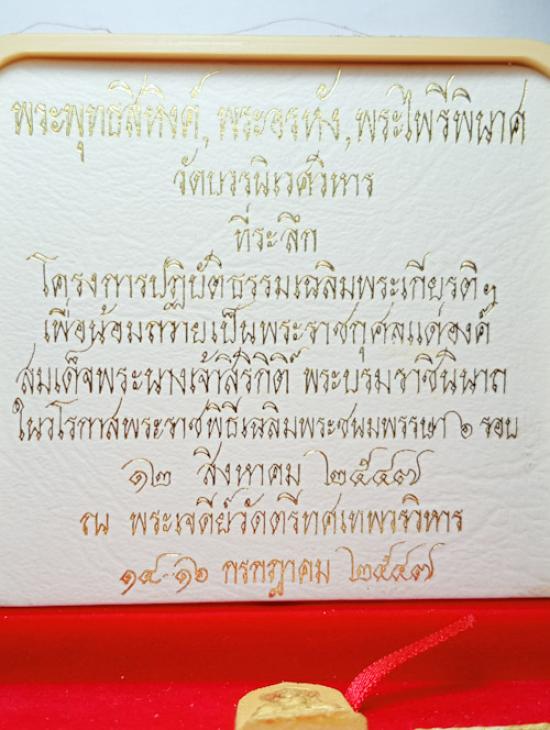 พระพุทธสิหิงค์, พระอรหัง, พระไพรีพินาศ
วัดบวรนิเวศวิหาร
ที่ระลึก
โครงการปฏิบัติธรรมเฉลิมพระเกียรติฯ
เพื่อน้อมถวายเป็นพระราชกุศลแด่องค์
สมเด็จพระนางเจ้าสิริกิติ์ พระบรมราชินีนาถ
ในวโรกาสพระราชพิธีเฉลิมพระชนมพรรษา ๖ รอบ
๑๒ สิงหาคม ๒๕๔๗
ณ พระเจดีย์วัดตรีทศเทพวรวิหาร
๑๔-๑๖ กรกฎาคม ๒๕๔๗